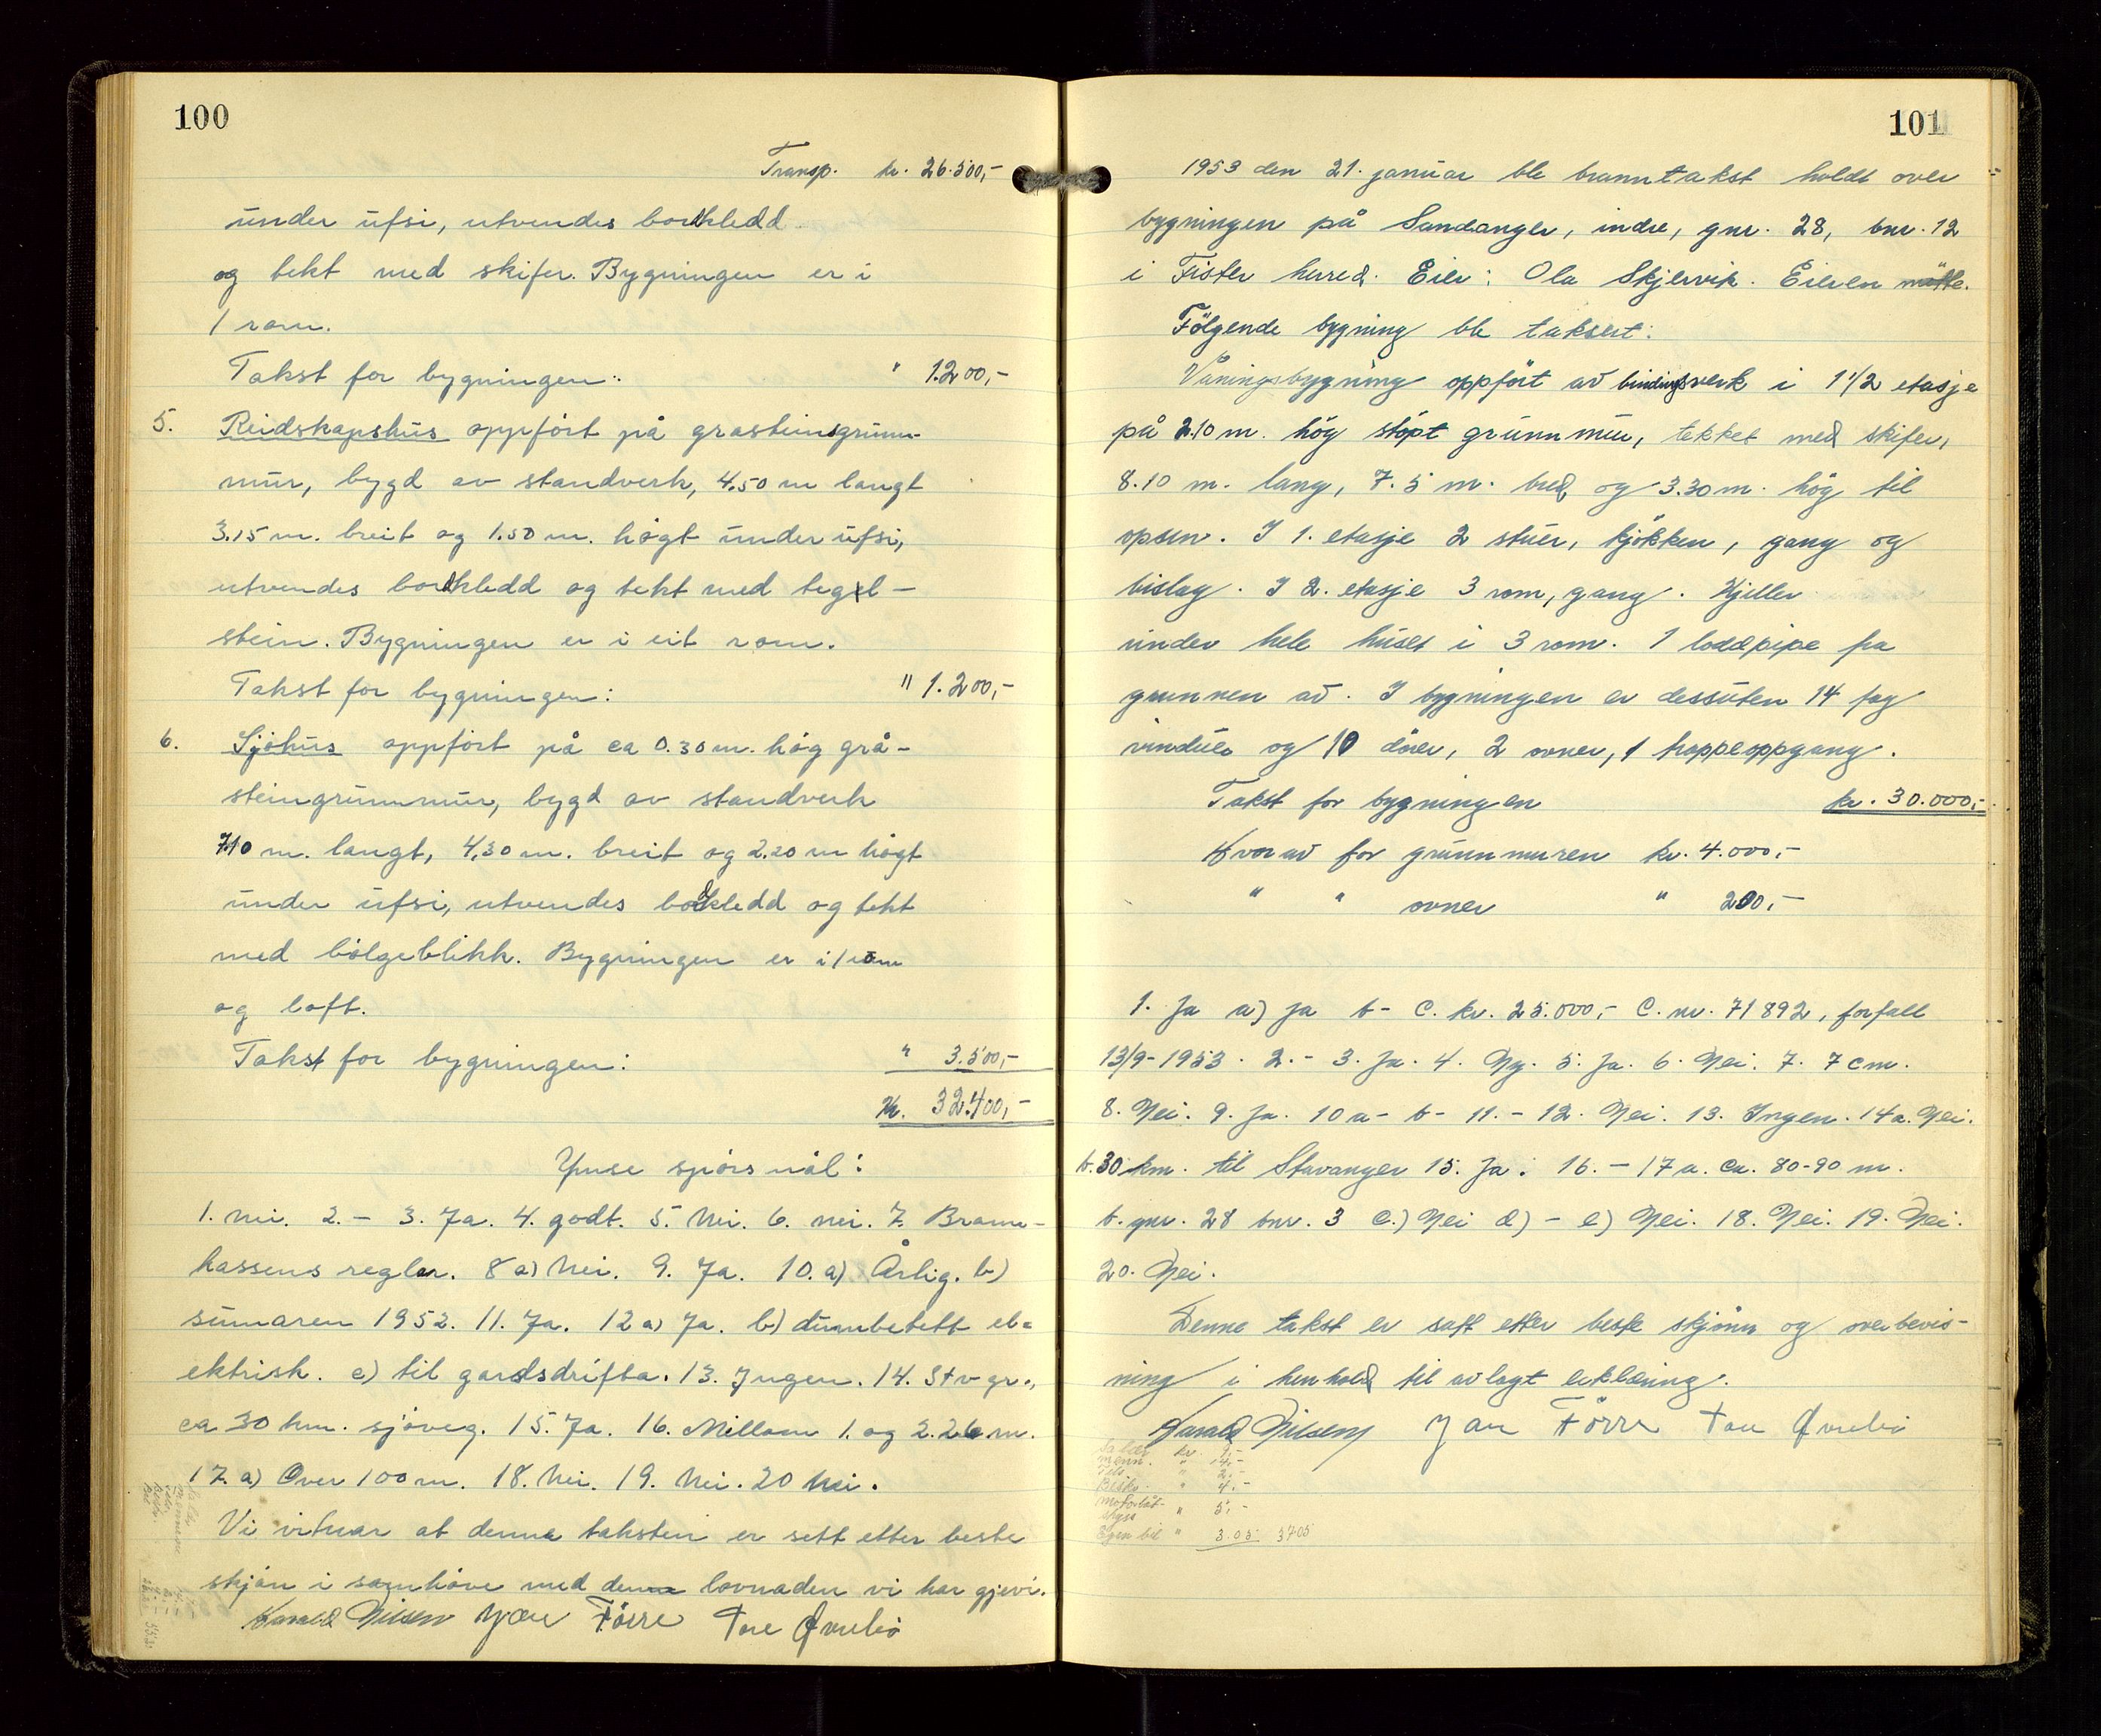 100
Transp. kr. 26.500,-
under ufsi, utvendes bordkledd
og tekt med skifer. Bygningen er i
1 rom.
Takst for bygningen: " 1.200,-
5. Reidskapshus oppfört på grasteinsgrunn-
mur, bygd av standverk, 4.50 m langt
3.15 m. breit og 1.50 m. högt under ufsi,
utvendes bordkledd og tekt med tegl-
stein. Bygningen er i eit rom.
Takst for bygningen: " 1.200,-
6. Sjöhus oppfört på ca 0.30 m. hög grå-
steingrunnmur, bygd av standverk
7.10 m. langt, 4,30 m. breit og 2.20 m högt
under ufsi, utvendes bordkledd og tekt
med bölgeblikk. Bygningen er i 1 rom
og loft.
Takst for bygningen: " 3.500,-
Kr. 32.400,-
Ymse spörsmål:
1. nei. 2. - 3. Ja. 4. godt. 5. Nei. 6. nei. 7. Brann-
kassens regler. 8 a) Nei. 9. Ja. 10. a) Årlig. b)
sumaren 1952. 11. Ja. 12 a) Ja. b) elr=
ektrisk. c) til gardsdrifta. 13. Ingen. 14. Stvgr.,
ca 30 km. sjöveg. 15. Ja. 16. Millom 1. og 2. 26 m.
17. a) Over 100 m. 18. Nei. 19. Nei. 20 Nei.
Vi vitnar at denna taksten er sett etter beste
skjön i samhöve med denne lovnaden vi har gjevi.
Harald Nilsen Jan Förre Tore Øvrebö
101
1953 den 21. januar ble branntakst holdt over
bygningen på Sandanger, indre, gnr. 28, bnr. 12
i Fister herred. Eier: Ola Skjervik. Eieren møtte.
Fölgende bygning ble taksert:
Våningsbygning oppfört av bindingsverk i 1 1/2 etasje
på 2.10 m. hög stöpt grunnmur, tekket med skifer,
8.10 m. lang, 7.5 m. bred og 3.30 m. hög til
opsen. I 1. etasje 2 stuer, kjökken, gang og
bislag. I 2. etasje 3 rom, gang. Kjeller
under hele huset i 3 rom. 1 loddpipe fra
grunnen av. I bygningen er dessuten 14 fag
vinduer og 10 dörer, 2 ovner, 1 trappeoppgang.
Takst for bygningen kr. 30.000,-
Hvorav for grunnmuren kr. 4.000,-
" " ovner " 200,-
1. Ja a) ja b - C. kr. 25.000,- C. nr. 71892, forfall
13/9-1953. 2. - 3. Ja. 4. Ny. 5. Ja. 6. Nei. 7. 7 cm.
8. Nei. 9. Ja. 10 a - b - 11. - 12. Nei. 13. Ingen. 14a. Nei.
b. 30 km. til Stavanger 15. Ja. 16. - 17 a. ca. 80-90 m.
b. gnr. 28 bnr. 3 c.) Nei d) - e) Nei. 18. Nei. 19. Nei.
20. Nei.
Denne takst er satt etter beste skjönn og overbevis-
ning i henhold til avlagt erklæring.
Harald Nilsen Jan Förre Tore Øvrebö
Salær kr. 9,-
" 14,-
" 2,-
" 4,-
Motorbåt-
skyss " 5,-
Egen bil " 3.05 37.05